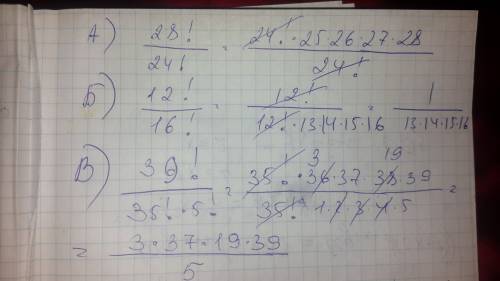 А) 28!/24! = 24!·25·26·27·28/24!
Б) 12!/16! = 12!/12!·13·14·15·16 = 1/13·14·15·16
В) 39!/35!·5! = 35!·36 3·37·38 19·39/35!·1·2·3·4·5 =
= 3·37·19·39/5